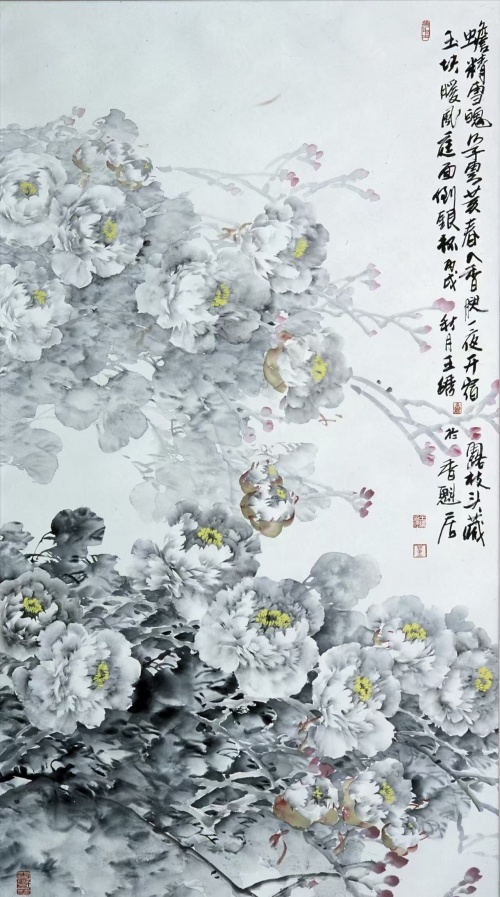 蟾精雪魄孕雲荄春入香腴一夜开宿露枝头藏
玉块暖風庭面倒銀杯丙戌秋月王绣於香魁居